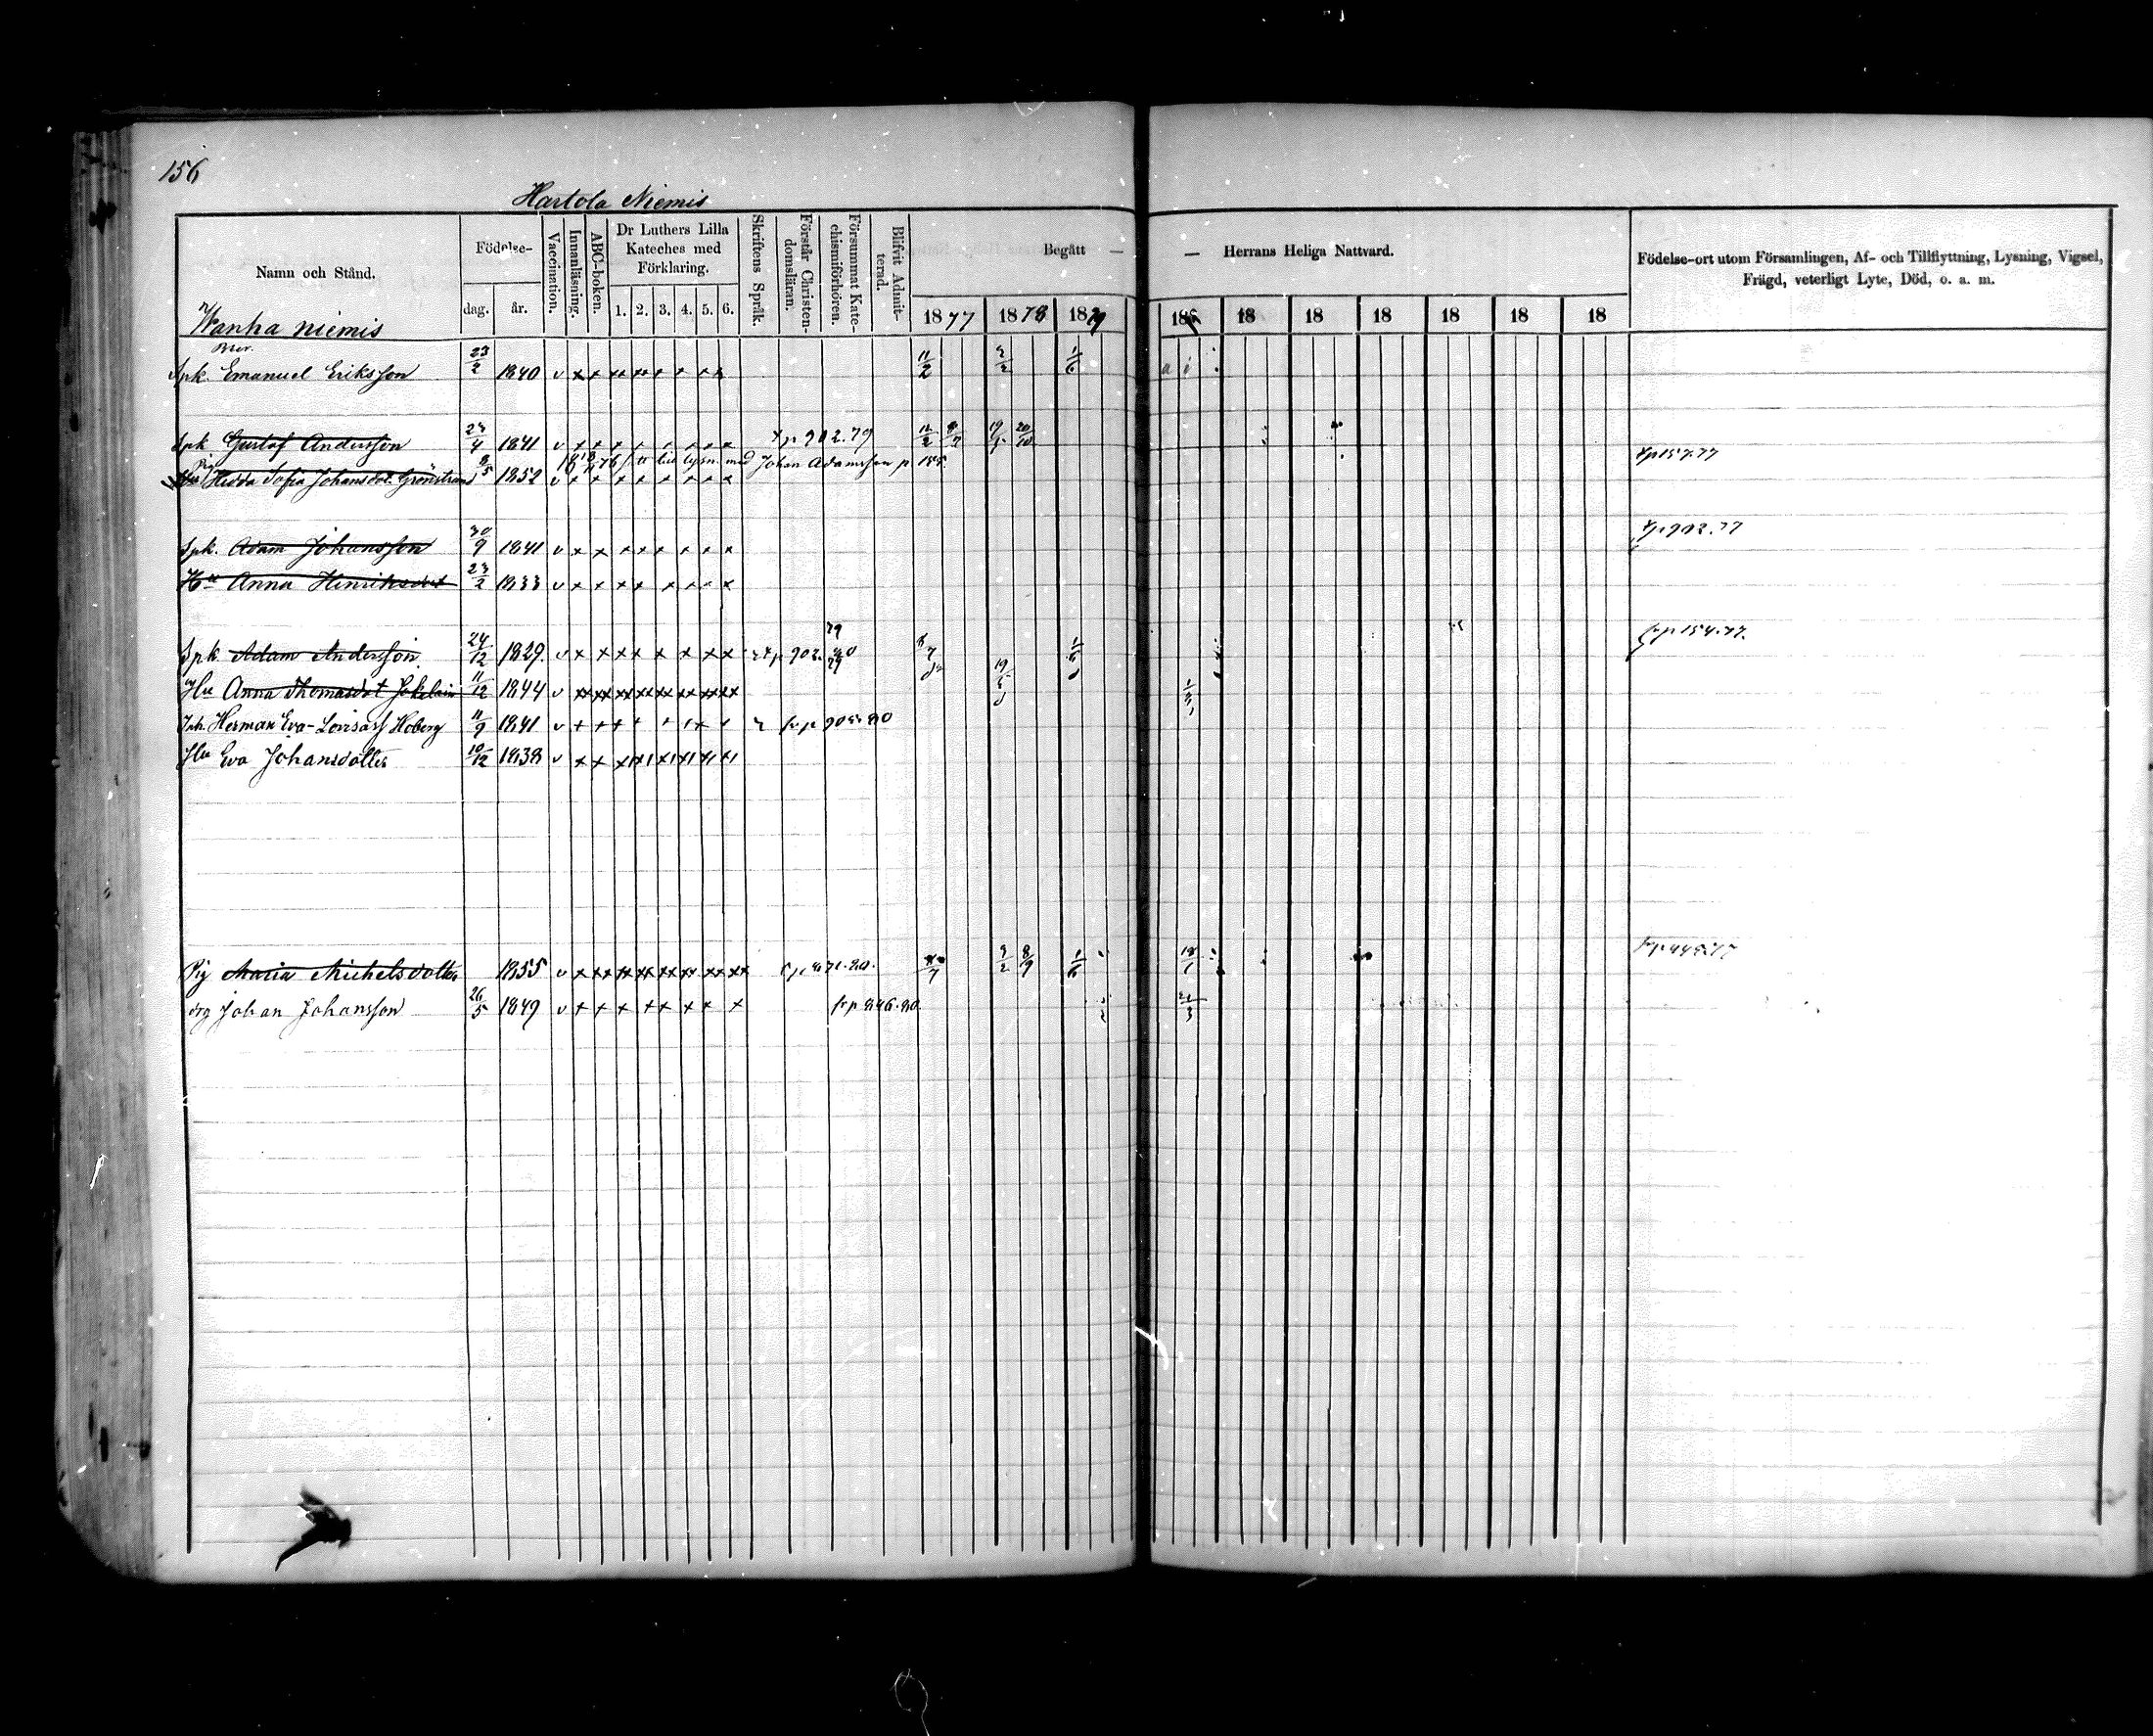 156
Hartola Niemis
Namn och Stånd.
Födelse-
dag.
år.
Vaccination.
Innanläsning.
ABC-boken.
Dr Luthers Lilla Kateches med Förklaring.
1. 2. 3. 4. 5. 6.
Skriftens Språk.
Förstår Christendomsläran.
Försummat Katechismiförhören.
Blifvit Admitterad.
Begått — — Herrans Heliga Nattvard.
1877 1878 1879 18 18 18 18 18 18 18
Födelse-ort utom Församlingen, Af- och Tillflyttning, Lysning, Vigsel, Frägd, veterligt Lyte, Död, o. a. m.
Wanha niemis
Spk. Emanuel Eriksson 23/2 1840 v x x x x x x x x 11/2 1/6
Spk Gustaf Andersson 4 1841 v x x x x x x x x p 902.79
lysn. med Johan Adamsson p 155.
Pig Hedda Sofia Johansdot. Grönstrand 8/5 1852 v x x x x x x x x p 157.77
Spk. Adam Johansson 30/9 1841 v x x x x x x x x p 902.77
Hu Anna Henriksdot 23/2 1833 v x x x x x x x x
Spk Adam Andersson 24/12 1829. v x x x x x x x x p 902. fr p 154.77.
Hu Anna Thomasdot 11/12 1844 v xx xx xx xx xx xx xx xx
Inh. Herman Eva-Lovisas Hoberg 11/9 1841 v + + + fr p 905 80
Hu Eva Johansdotter 10/12 1838 v x x
Pig Maria Michelsdotter 1855 v x x x xx xx xx xx xx xx 1/6
drg Johan Johansson 26/5 1849 v x x x x x x x x fr p 846.80